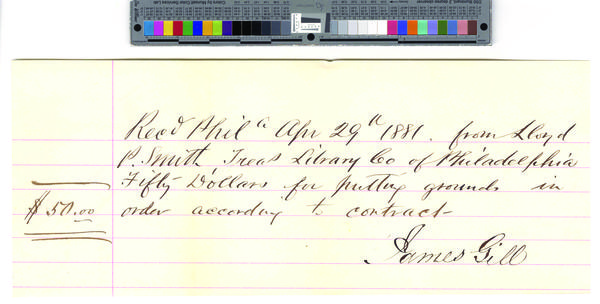 Recd Phila Apr 29th 1881. from Lloyd
P. Smith Treas Library Co of Philadelphia
Fifty Dollars for putting grounds in
$50.00 order according to contract
James Gill